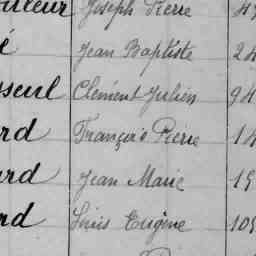 uleur Joseph Pierre 49
é Jean Baptiste 24
sseul Clément Julien 94
rd François Pierre 14
ard Jean Marie 15
rd Louis Eugène 109